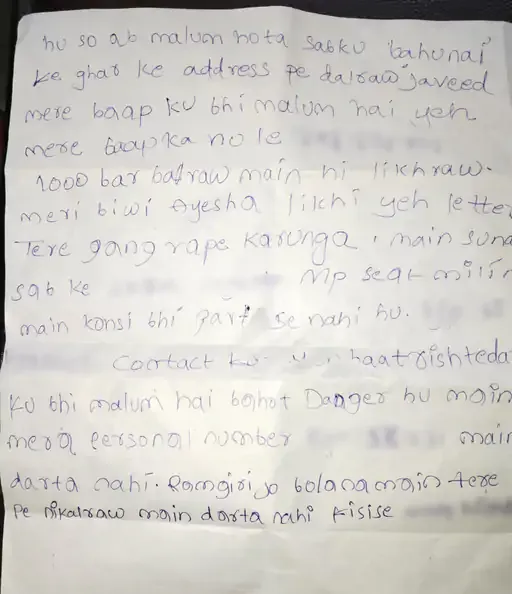 hu so ab malum hota sabku bahunai
ke ghar ke address pe dalraw javeed
mere baap ku bhi malum hai yeh
mere baap ka no le
1000 bar batraw main ni likhraw.
meri biwi Ayesha likhi yeh letter
Tere gang rape karunga. main suna
sab ke MP seat milin
main konsi bhi part se nahi hu.
Contact ku haat rishteda
ku bhi malum hai bahot Danger hu main
mera personal number main
darta nahi. Ramgiri jo bola na main tere
pe nikalraw main darta nahi kisise